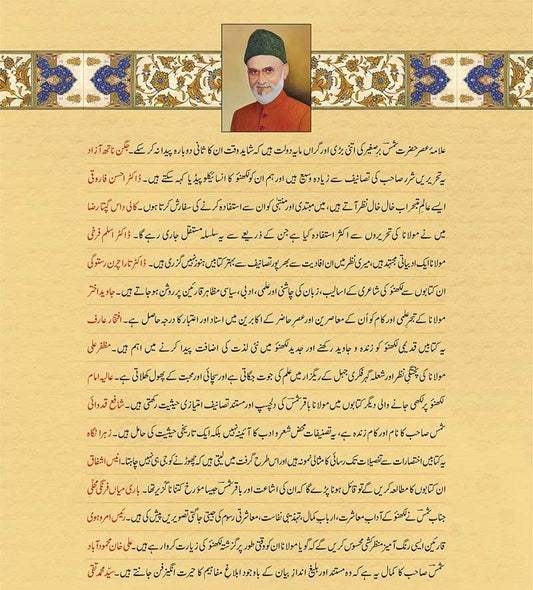 علامۂ عصر حضرت شمسؔ برصغیر کی اتنی بڑی اور گراں مایہ دولت ہیں کہ شاید وقت ان کا ثانی دوبارہ پیدا نہ کرسکے۔ جگن ناتھ آزاد
یہ تحریریں شررصاحب کی تصانیف سے زیادہ وسیع ہیں اور ہم ان کو لکھنؤ کا انسائیکلوپیڈیا کہہ سکتے ہیں۔ ڈاکٹر احسن فاروقی
ایسے عالم تبحر اب خال خال نظر آتے ہیں، میں مبتدی اور منتہی کو ان سے استفادہ کرنے کی سفارش کرتا ہوں۔ کالی داس گپتا رضا
میں نے مولانا کی تحریروں سے اکثر استفادہ کیا ہے جن کے ذریعے سے یہ سلسلہ مستقل جاری رہے گا۔ ڈاکٹر اسلم فرخی
مولانا ایک ادبیاتی مجتہد ہیں، میری نظر میں ان افادیت سے بھرپور تصانیف سے بہتر کتابیں ہنوز نہیں گزری ہیں۔ ڈاکٹر تارا چرن رستوگی
ان کتابوں سے لکھنؤ کی شاعری کے اسالیب، زبان کی چاشنی اور علمی، ادبی، سیاسی مظاہر قارئین پر روشن ہوجاتے ہیں۔ جاوید اختر
مولانا کے تبحر علمی اور کام کو اُن کے معاصرین اور عصر حاضر کے اکابرین میں اسناد اور اعتبار کا درجہ حاصل ہے۔ افتخار عارف
یہ کتابیں قدیمی لکھنؤ کو زندہ و جاوید رکھنے اور جدید لکھنؤ میں نئی لذت کی اضافت پیدا کرنے میں اہم ہیں۔ مظفر علی
مولانا کی پختگی نظر اور شعلہ گہر فکری جہل کے ریگزار میں علم کی جوت جگاتی ہے اور سچائی اور محبت کے پھول کھلاتی ہے۔ عالیہ امام
لکھنؤ پر لکھی جانے والی دیگر کتابوں میں مولانا باقر شمسؔ کی دلچسپ اور مستند تصانیف امتیازی حیثیت رکھتی ہیں۔ شافع قدوائی
شمسؔ صاحب کا نام اور کام زندہ ہے، یہ تصنیفات محض شعر و ادب کا آئینہ نہیں بلکہ ایک تاریخی حیثیت کی حامل ہیں۔ زہرا نگاہ
یہ کتابیں اختصارات سے تفصیلات تک رسائی کا مثالی نمونہ ہیں اور اس طرح گرفت میں لیتی ہیں کہ چھوڑنے کو جی ہی نہیں چاہتا۔ انیس اشفاق
ان کتابوں کا مطالعہ کریں گے تو قائل ہونا پڑے گا کہ ان کی اشاعت اور باقر شمسؔ جیسا مؤرخ کتنا ناگزیر تھا۔ باری میاں فرنگی محلی
جناب شمسؔ نے لکھنؤ کے آداب معاشرت، ارباب کمال، تہذیبی نفاست، معاشرتی رسوم کی جیتی جاگتی تصویریں پیش کی ہیں۔ رئیس امروہوی
قارئین ایسی رنگ آمیز منظرکشی محسوس کریں گے کہ گویا مولانا ان کو وقتی طور پر گزشتہ لکھنؤ کی زیارت کروا رہے ہیں۔ علی خان محمودآباد
شمسؔ صاحب کا کمال یہ ہے کہ وہ مستند اور بلیغ انداز بیان کے باوجود ابلاغ مفاہیم کا حیرت انگیز فن جانتے ہیں۔ سیّد محمد تقی